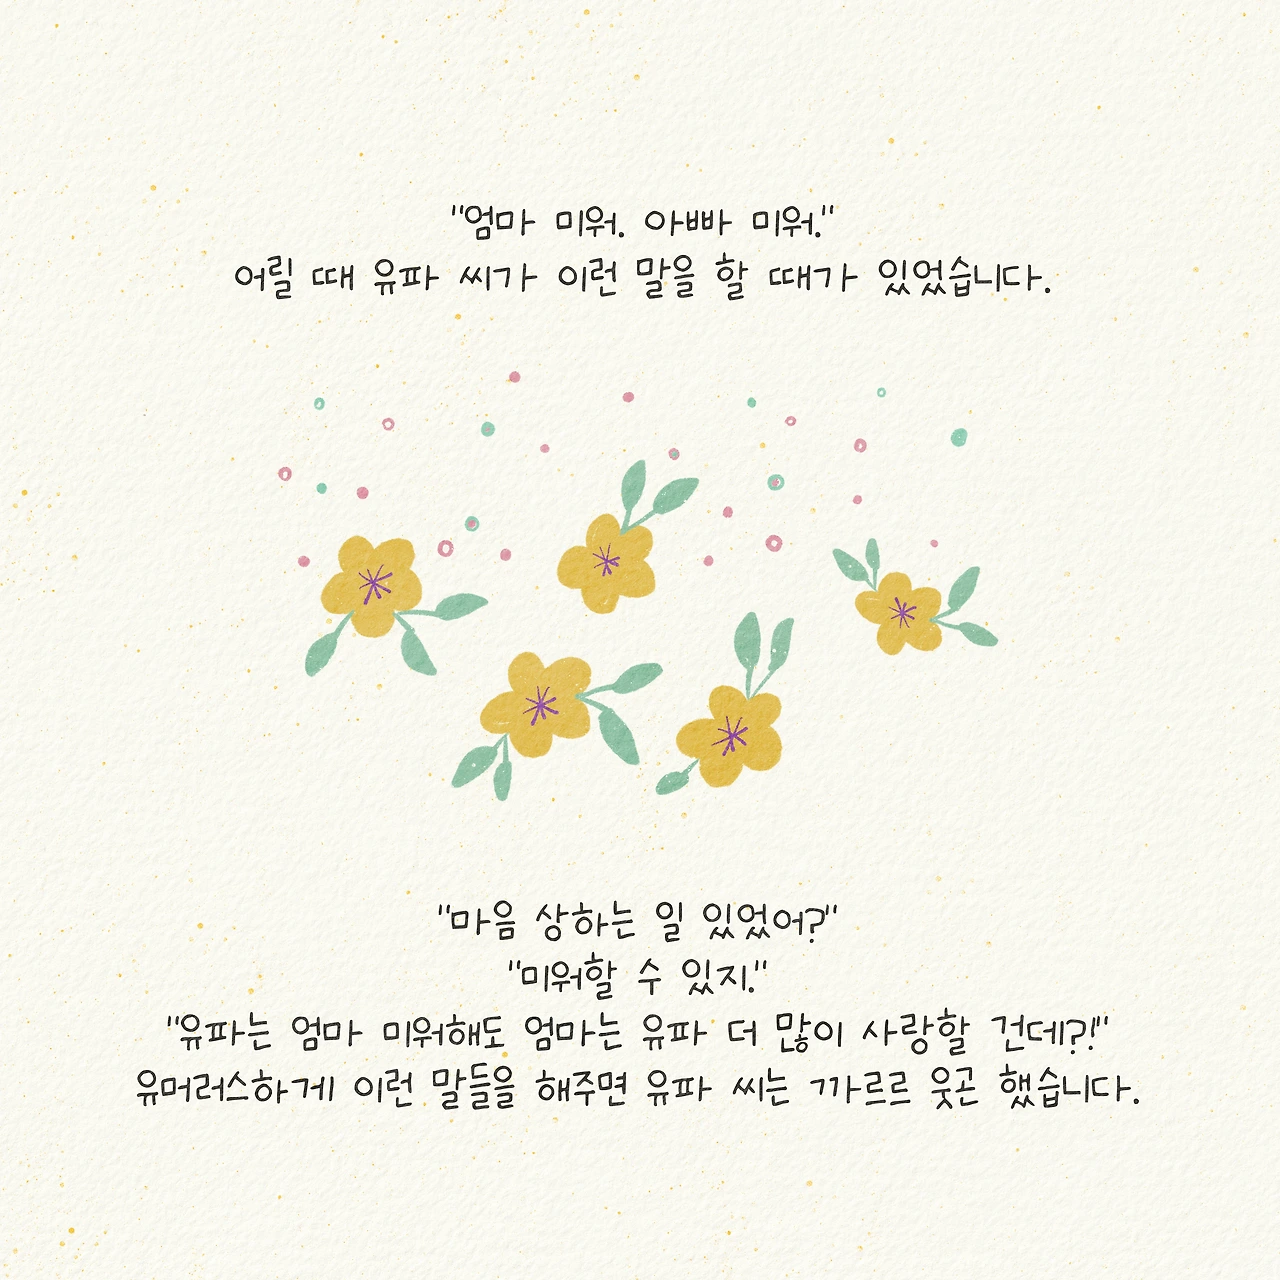 "엄마 미워. 아빠 미워."
어릴 때 유파 씨가 이런 말을 할 때가 있었습니다.
"마음 상하는 일 있었어?"
"미워할 수 있지."
"유파는 엄마 미워해도 엄마는 유파 더 많이 사랑할 건데?!"
유머러스하게 이런 말들을 해주면 유파 씨는 까르르 웃곤 했습니다.